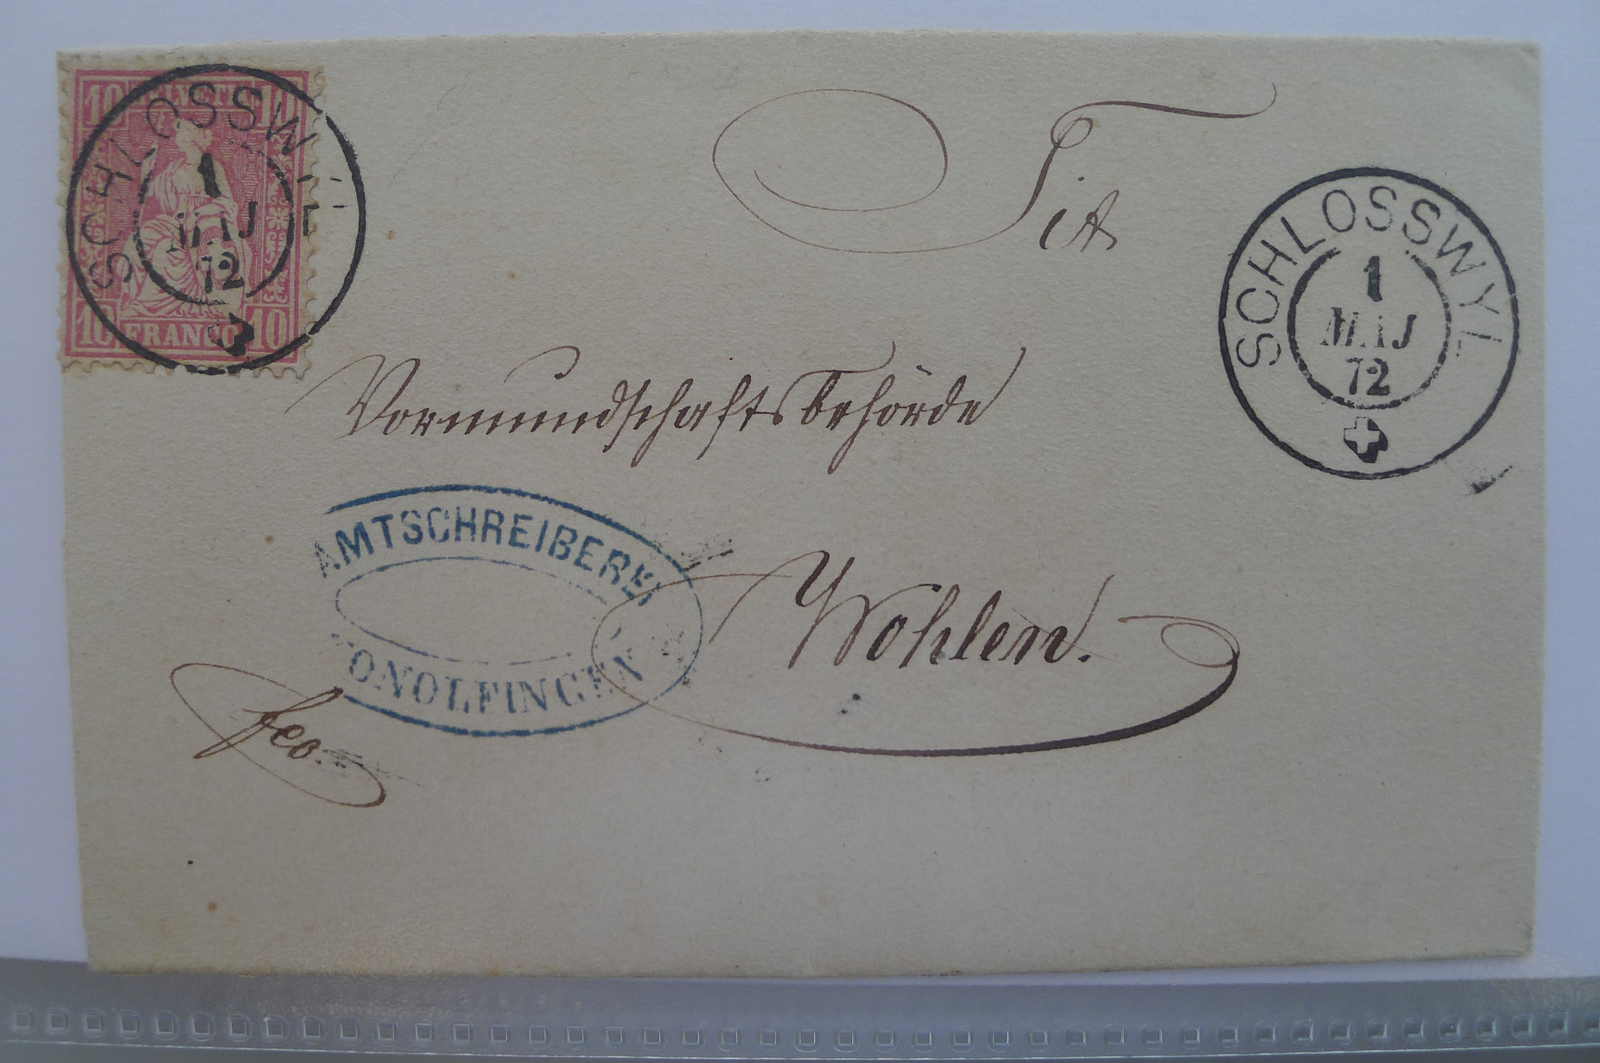 10 HELVETIA 10
10 FRANCO 10
SCHLOSSWYL
1
MAI
72
Tit
SCHLOSSWYL
1
MAI
72
Vormundschaftsbehörde
AMTSCHREIBEREI
KONOLFINGEN
Wohlen.
fco.